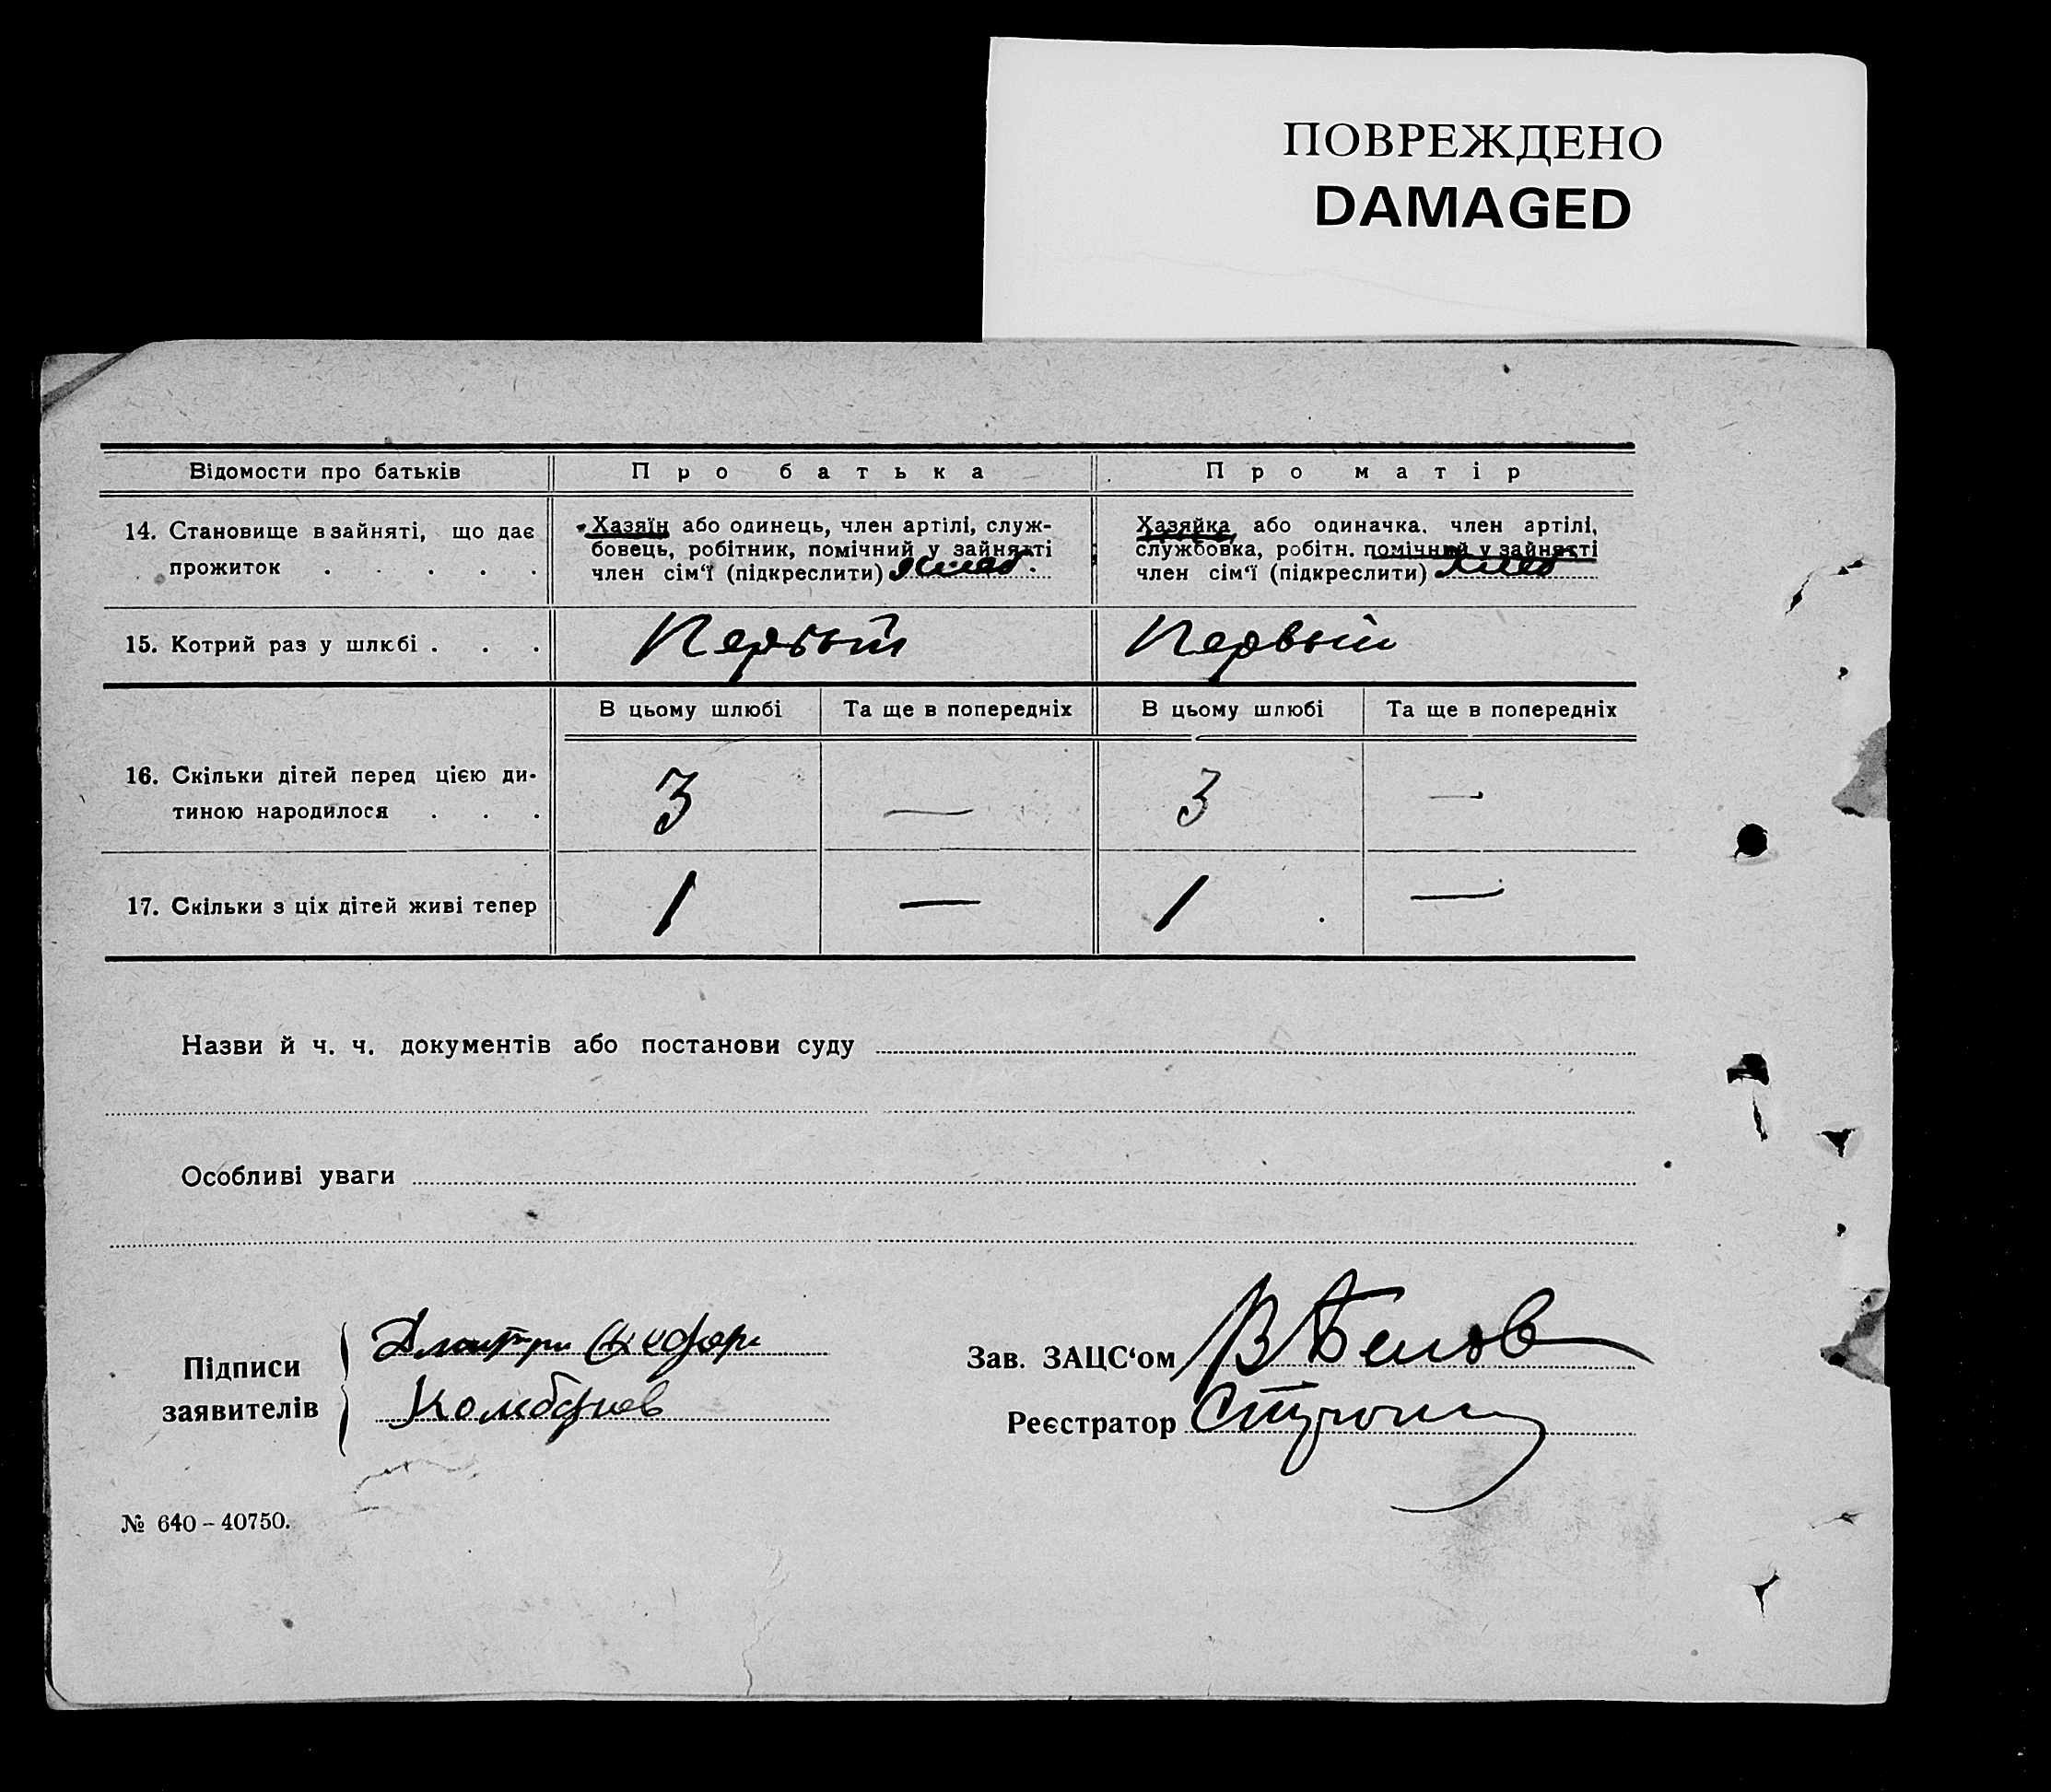 ПОВРЕЖДЕНО
DAMAGED
Відомости про батьків
Про батька
Про матір
14. Становище в зайняті, що дає
прожиток . . . . .
Хазяїн або одинець, член артілі, служ-
бовець, робітник, помічний у зайнятті
член сім‘ї (підкреслити)
Хазяйка або одиначка. член артілі,
службовка, робітн. помічний у зайнятті
член сім‘ї (підкреслити)
15. Котрий раз у шлюбі . . .
Первый
Первый
В цьому шлюбі
Та ще в попередніх
В цьому шлюбі
Та ще в попередніх
16. Скільки дітей перед цією ди-
тиною народилося . . .
3
—
3
—
17. Скільки з ціх дітей живі тепер
1
—
1
—
Назви й ч. ч. документів або постанови суду
Особливі уваги
Підписи
заявителів
Дмитри
Зав. ЗАЦС‘ом
В Белов
Реєстратор
№ 640 – 40750.